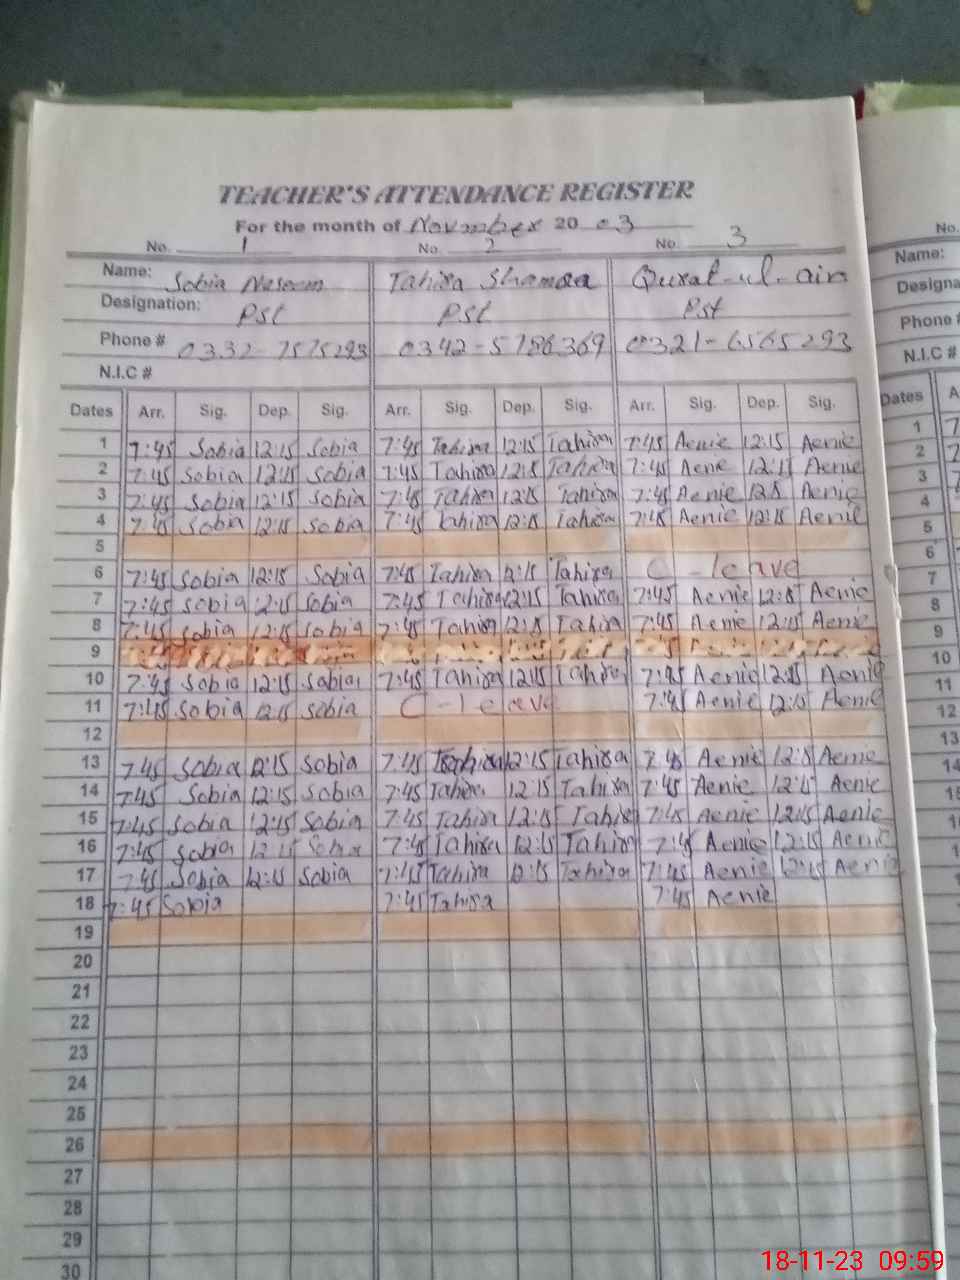 TEACHER'S ATTENDANCE REGISTER
For the month of November 20 03
No. 1 No. 2 No. 3 No.
Name: Sobia Naseem Tahira Shamsa Qurat-ul-ain Name:
Designation: PST PST Pst Designa
Phone # 0332-7575293 0342-5786369 0321-6565293 Phone #
N.I.C # N.I.C #
Dates Arr. Sig. Dep. Sig. Arr. Sig. Dep. Sig. Arr. Sig. Dep. Sig. Dates A
1 7:45 Sobia 12:15 Sobia 7:45 Tahira 12:15 Tahira 7:45 Aenie 12:15 Aenie 1
2 7:45 Sobia 12:15 Sobia 7:45 Tahira 12:15 Tahira 7:45 Aenie 12:15 Aenie 2
3 7:45 Sobia 12:15 Sobia 7:45 Tahira 12:15 Tahira 7:45 Aenie 12:15 Aenie 3
4 7:45 Sobia 12:15 Sobia 7:45 Tahira 12:15 Tahira 7:45 Aenie 12:15 Aenie 4
5 5
6 7:45 Sobia 12:15 Sobia 7:45 Tahira 12:15 Tahira C-leave 6
7 7:45 Sobia 12:15 Sobia 7:45 Tahira 12:15 Tahira 7:45 Aenie 12:15 Aenie 7
8 7:45 Sobia 12:15 Sobia 7:45 Tahira 12:15 Tahira 7:45 Aenie 12:15 Aenie 8
9 9
10 7:45 Sobia 12:15 Sobia 7:45 Tahira 12:15 Tahira 7:45 Aenie 12:15 Aenie 10
11 7:45 Sobia 12:15 Sobia C-leave 7:45 Aenie 12:15 Aenie 11
12 12
13 7:45 Sobia 12:15 Sobia 7:45 Tahira 12:15 Tahira 7:45 Aenie 12:15 Aenie 13
14 7:45 Sobia 12:15 Sobia 7:45 Tahira 12 15 Tahira 7:45 Aenie 12:15 Aenie 14
15 7:45 Sobia 12:15 Sobia 7:45 Tahira 12:15 Tahira 7:45 Aenie 12:15 Aenie
16 7:45 Sobia 12:15 Sobia 7:45 Tahira 12:15 Tahira 7:45 Aenie 12:15 Aenie
17 7:45 Sobia 12:15 Sobia 7:45 Tahira 12:15 Tahira 7:45 Aenie 12:15 Aenie
18 7:45 Sobia 7:45 Tahira 7:45 Aenie
19
20
21
22
23
24
25
26
27
28
29
30
18-11-23 09:59